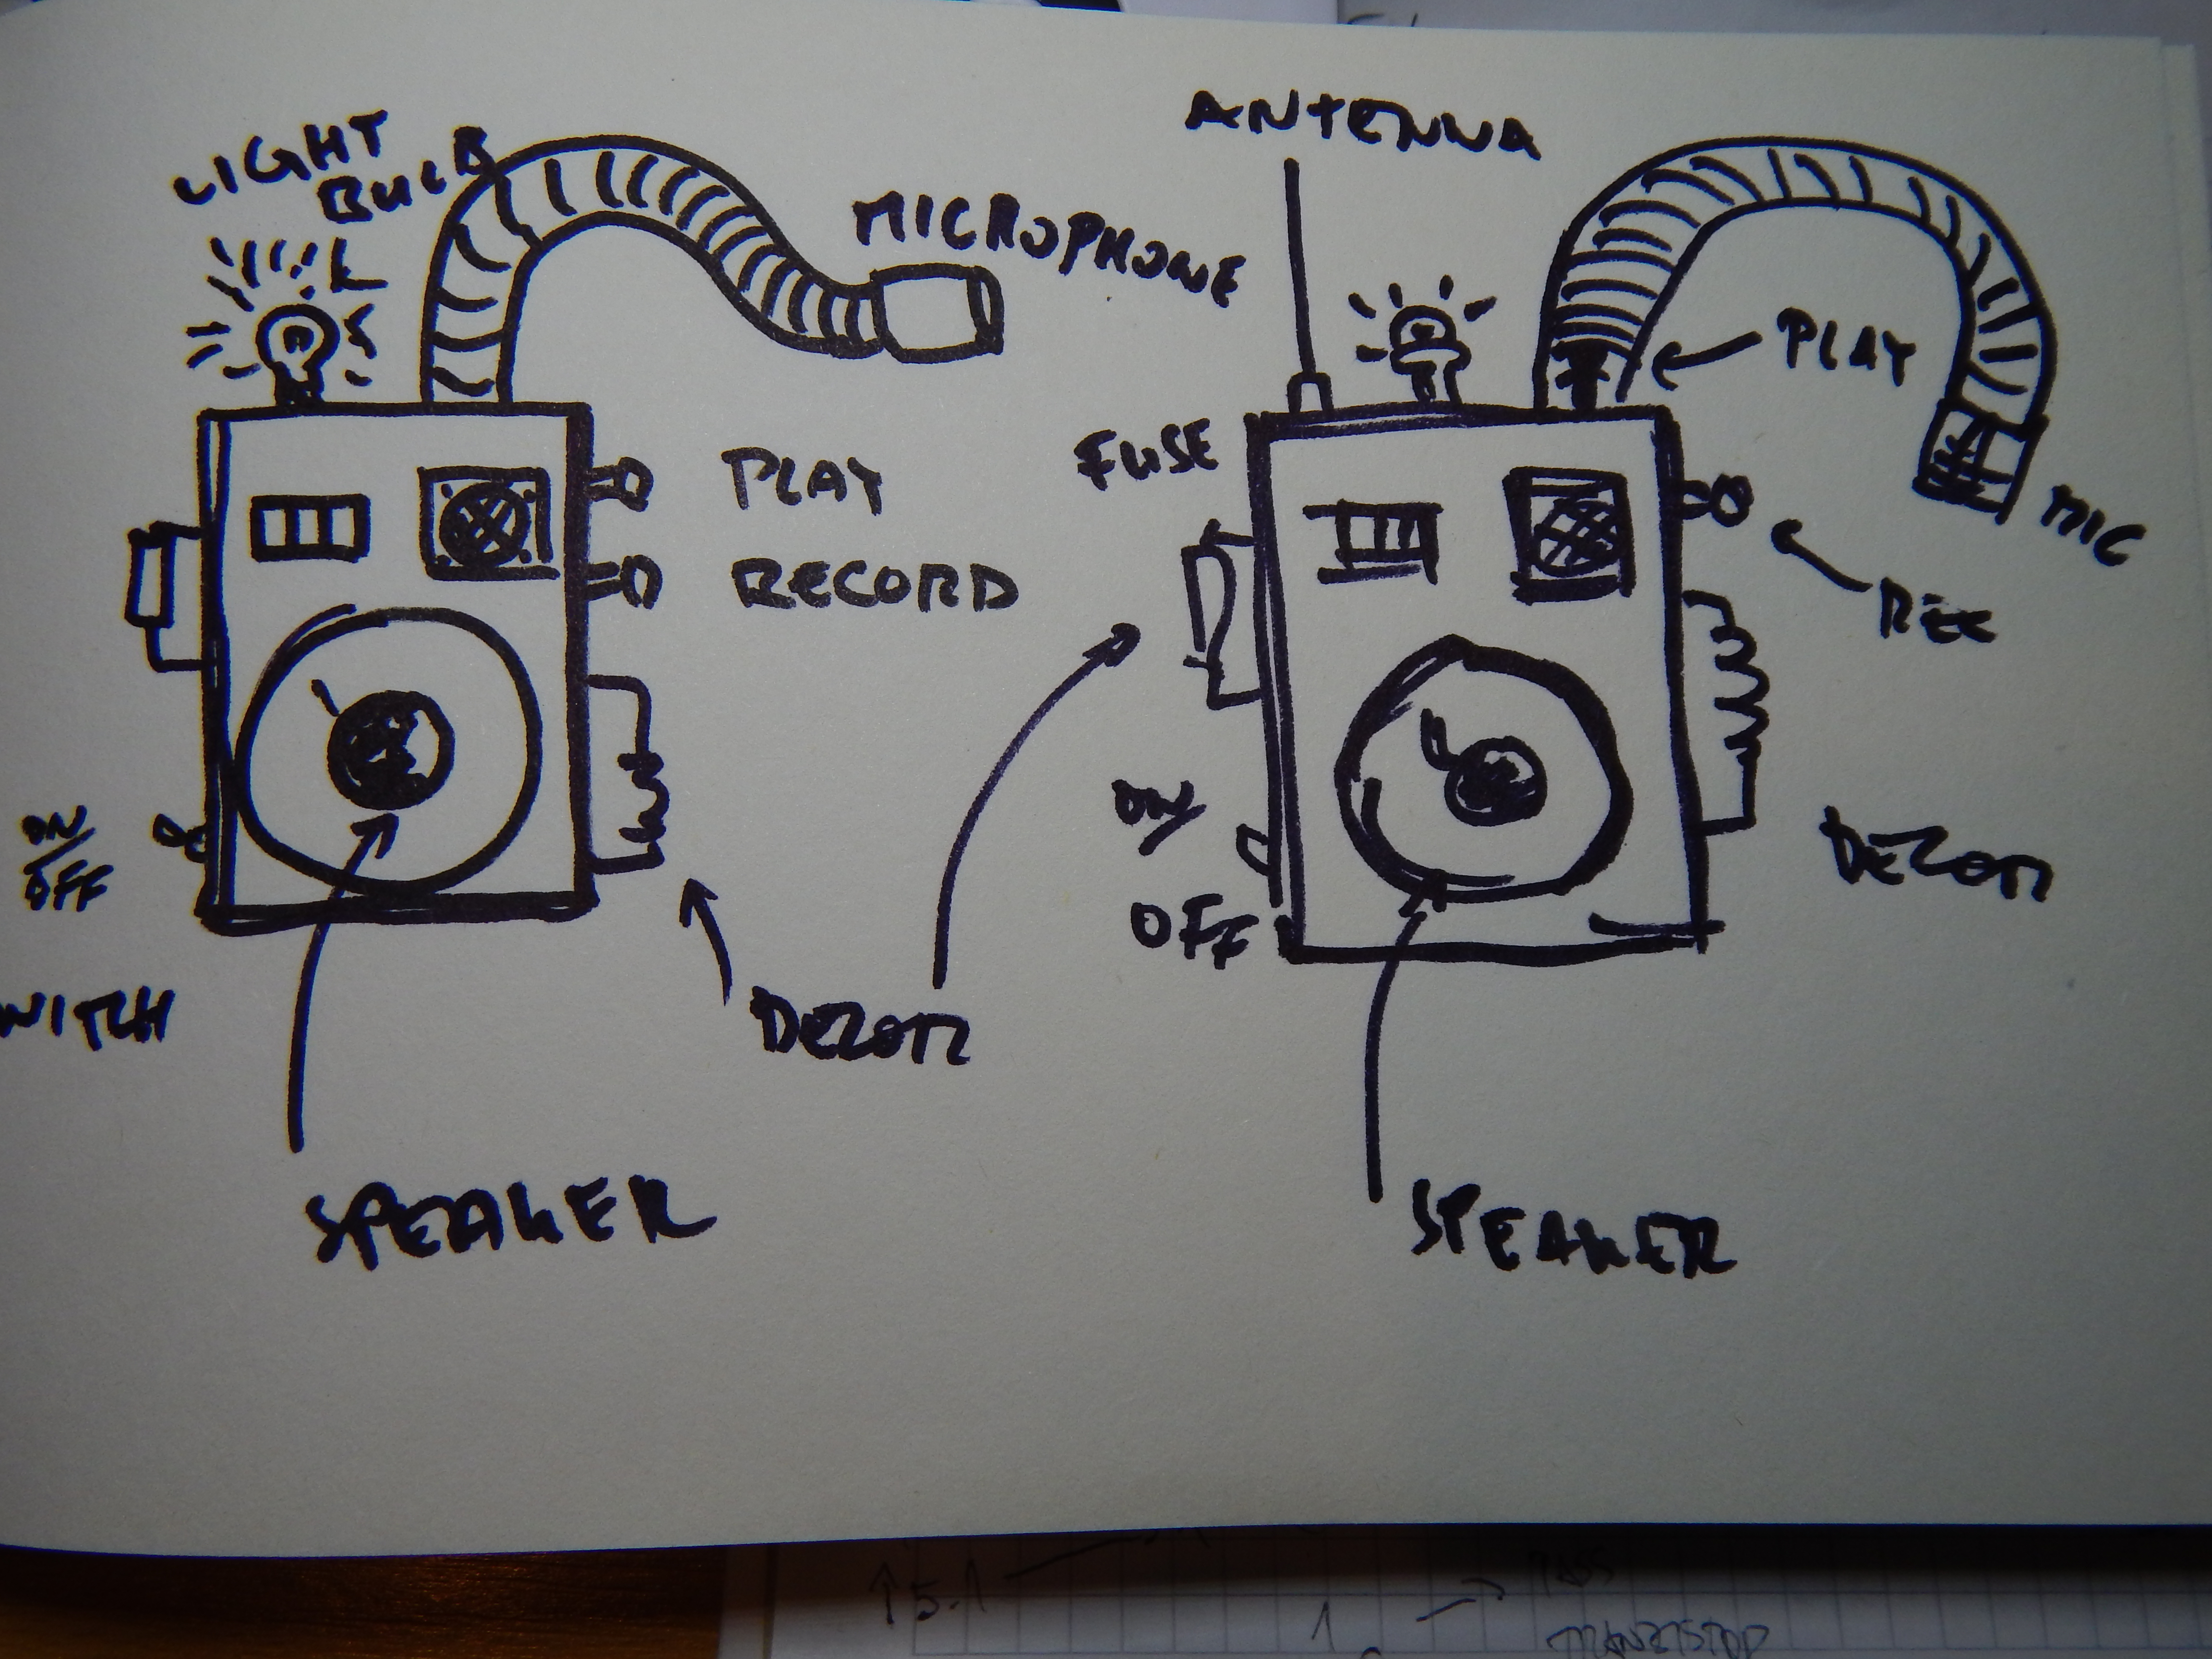 LIGHT
BULB
MICROPHONE
PLAY
RECORD
ON/
OFF
WITCH
SPEAKER
DEZOR
ANTENNA
PLAY
FUSE
MIC
REC
ON/
OFF
DEZOR
SPEAKER